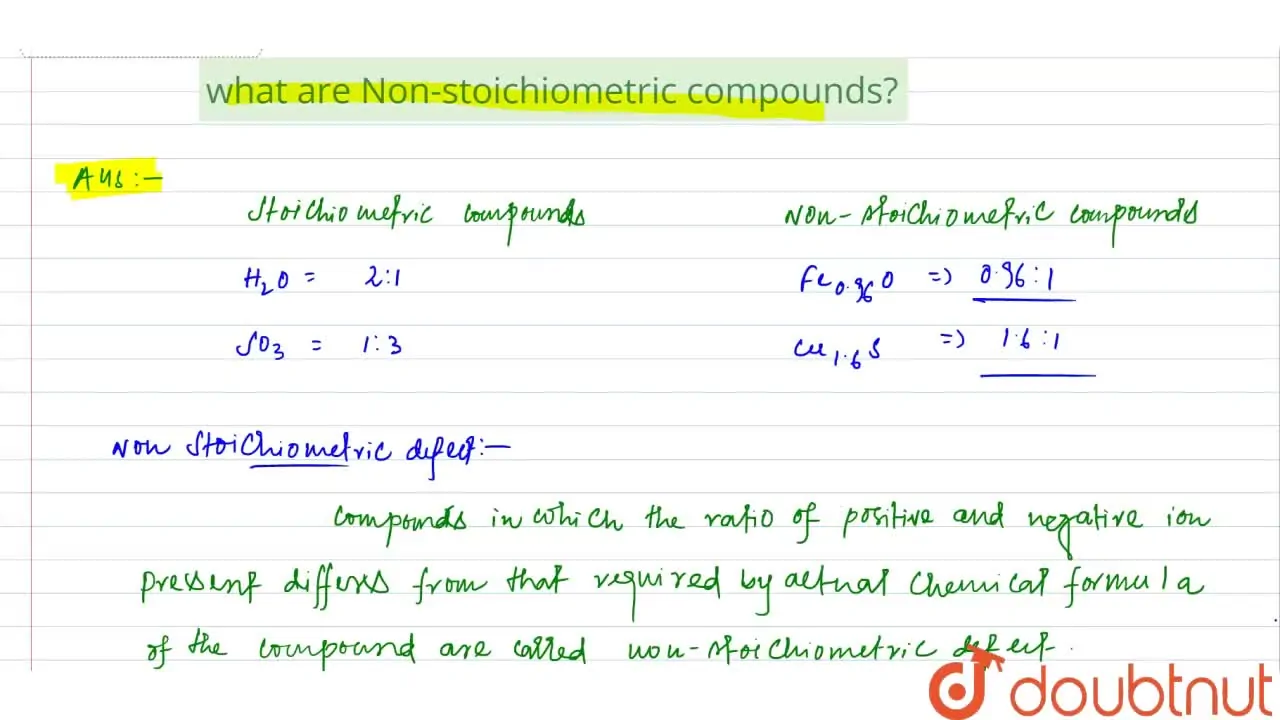 what are Non-stoichiometric compounds?
Ans:-
Stoichiometric compounds Non-stoichiometric compounds
H₂O = 2:1 Fe₀.₉₆O => 0.96:1
SO₃ = 1:3 Cu₁.₆S => 1.6:1
Non stoichiometric defect:-
compounds in which the ratio of positive and negative ion
present differs from that required by actual chemical formula
of the compound are called non-stoichiometric defect.
doubtnut